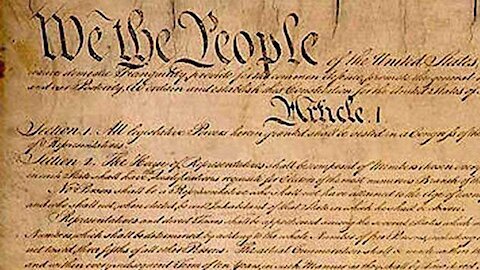 We the People of the United States,
insure domestic Tranquility, provide for the common defence, promote the general
and our Posterity, do ordain and establish this Constitution for the United States of
Article. I
Section. 1. All legislative Powers herein granted shall be vested in a Congress of the
of Representatives.
Section. 2. The House of Representatives shall be composed of Members chosen every
in each State shall have Qualifications requisite for Electors of the most numerous Branch of the
No Person shall be a Representative who shall not have attained to the Age of twenty
and who shall not, when elected, be an Inhabitant of that State in which he shall be chosen.
Representatives and direct Taxes shall be apportioned among the several States which
Numbers, which shall be determined by adding to the whole Number of free Persons,
not taxed, three fifths of all other Persons. The actual Enumeration shall be made
and within every subsequent Term of ten Years, in such Manner as